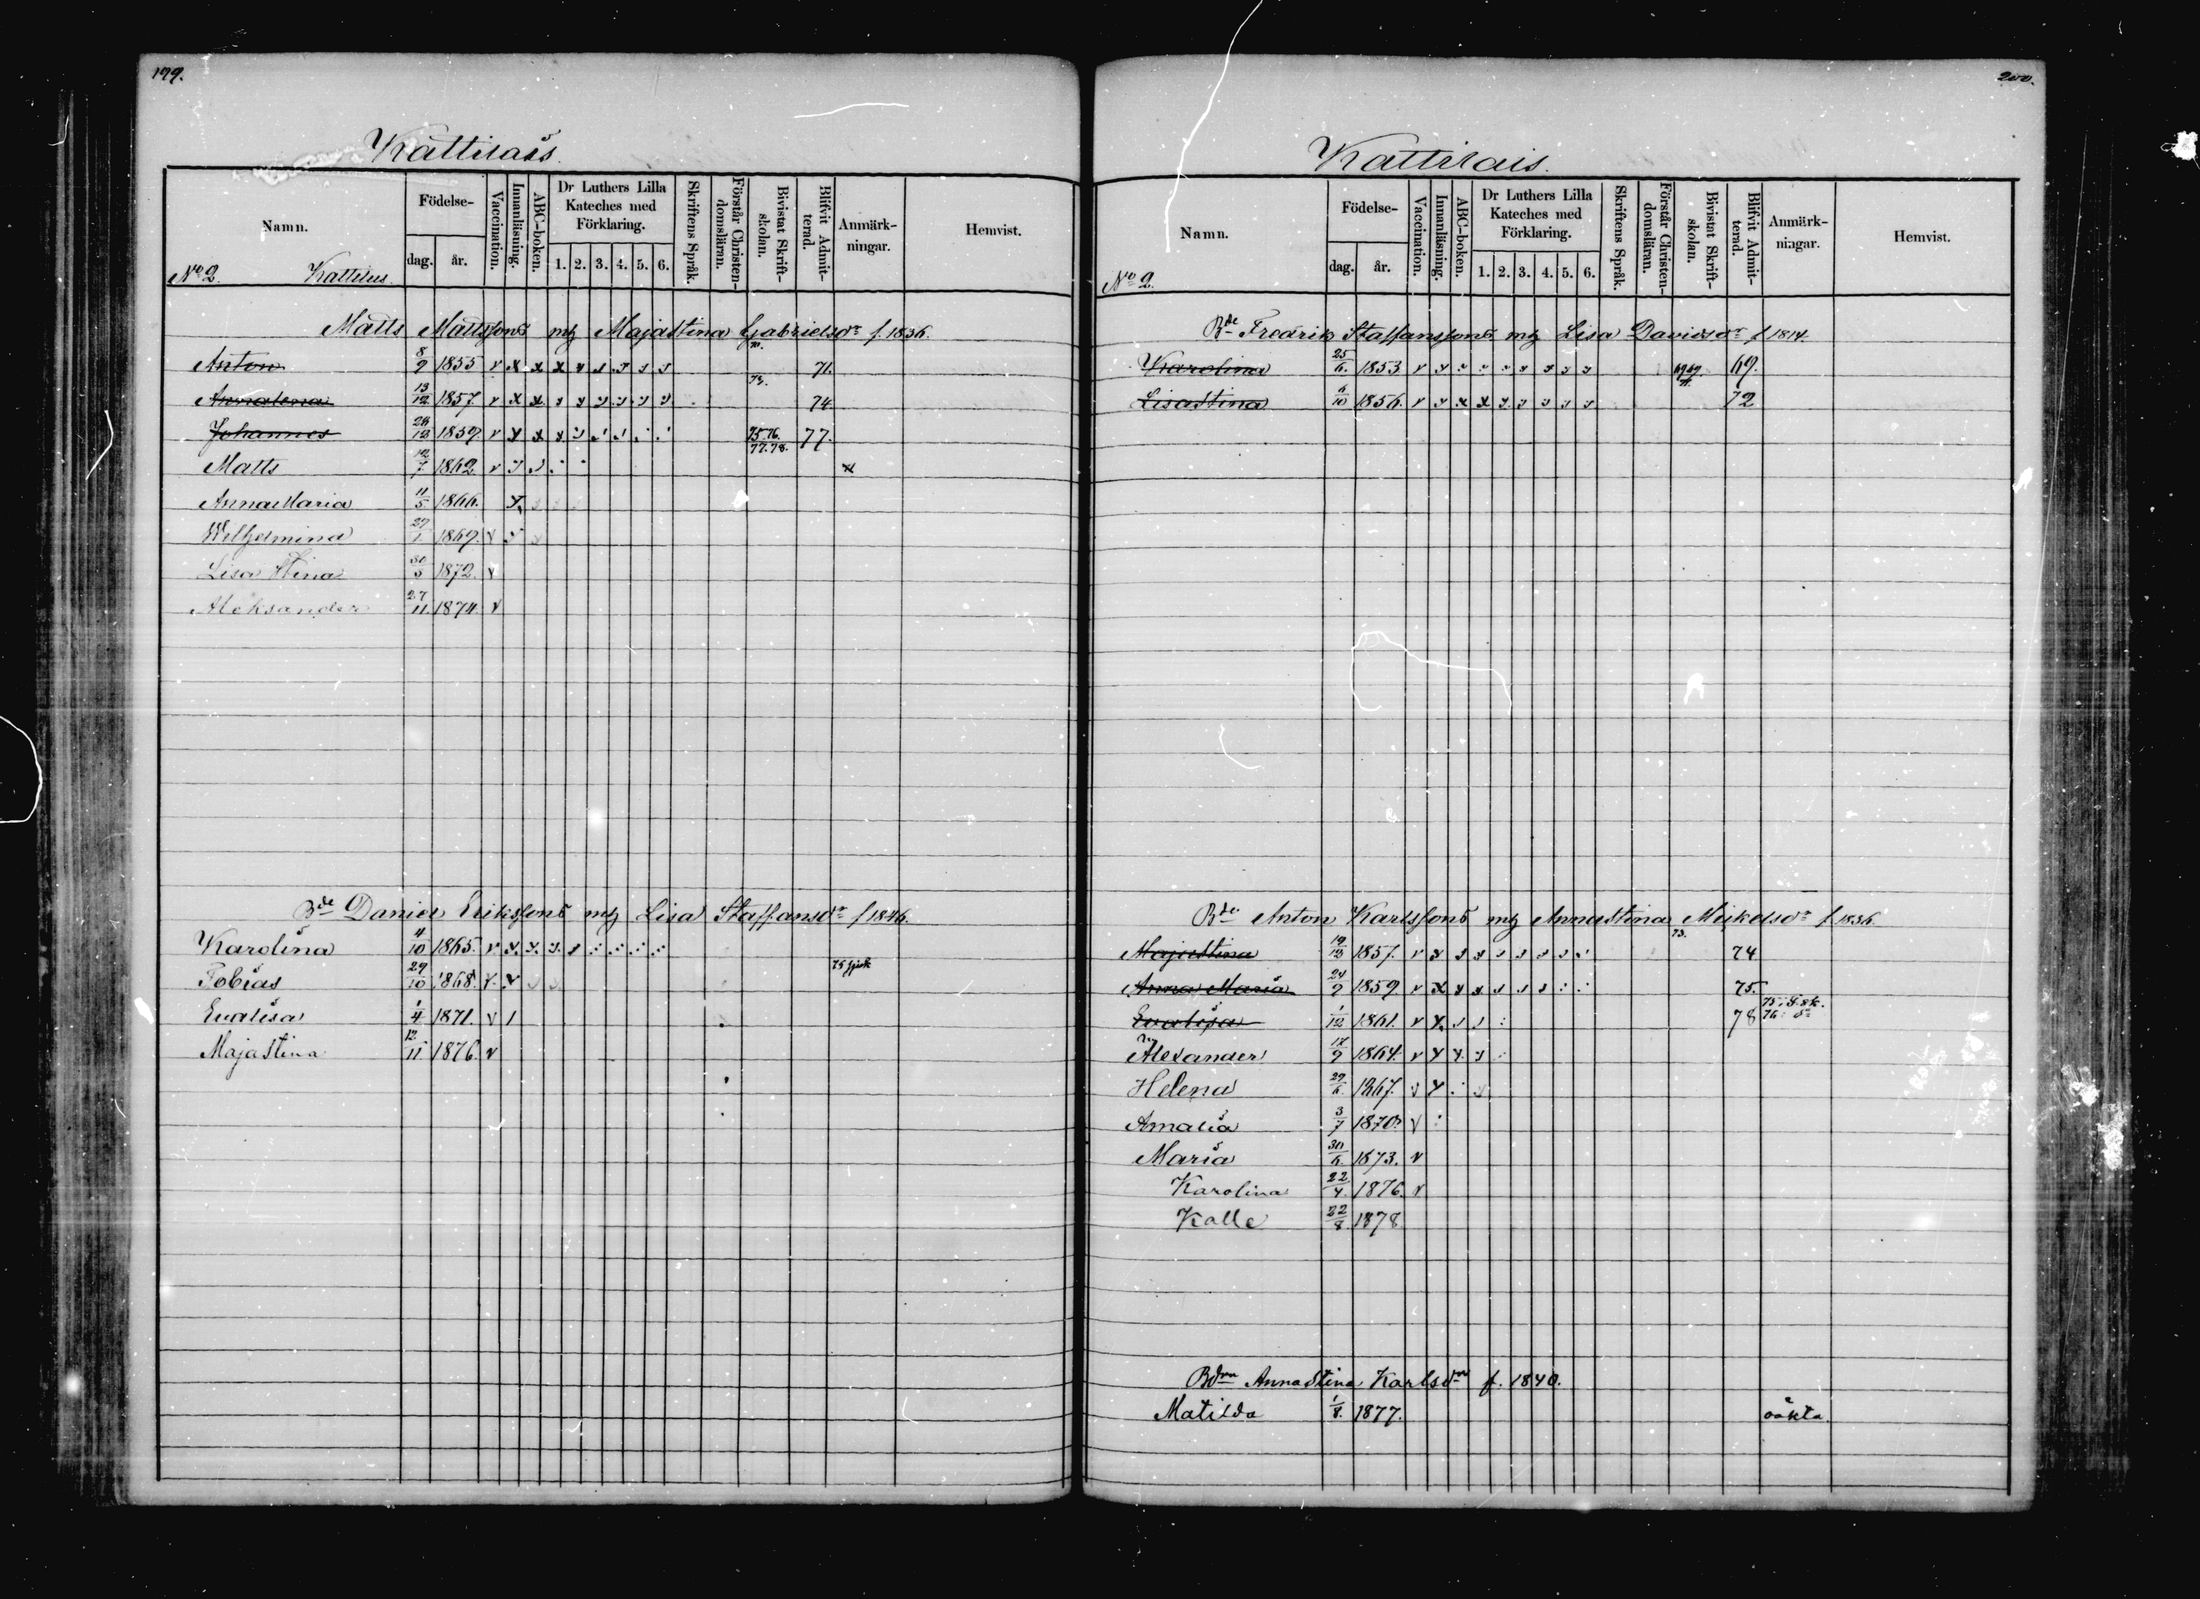 199.
Kattilais.
Namn. Födelse- dag. år. Vaccination. Innanläsning. ABC-boken. Dr Luthers Lilla Kateches med Förklaring. 1. 2. 3. 4. 5. 6. Skriftens Språk. Förstår Christendomsläran. Bivistat Skriftskolan. Blifvit Admitterad. Anmärkningar. Hemvist.
No 2. Kattilus.
Matts Mattssons m Majastina Gabrielsdr f. 1836.
Anton 8/9 1855 71.
Annalena 13/12 1857. 73. 74
Johannes 26/12 1859 75. 76. 77. 78. 77.
Matts 12/7 1862
AnnaMaria 11/5 1866.
Wilhelmina 27/1 1869.
Lisa Stina 30/3 1872.
Aleksander 27/11 1874.
Bde Daniel Erikssons m Lisa Staffansdr f 1846.
Karolina 4/10 1865.
Tobias 29/10 1868. 75 sjuk
Evalisa 1/4 1871.
Majastina 12/11 1876.
200.
Kattilais.
Namn. Födelse- dag. år. Vaccination. Innanläsning. ABC-boken. Dr Luthers Lilla Kateches med Förklaring. 1. 2. 3. 4. 5. 6. Skriftens Språk. Förstår Christendomsläran. Bivistat Skriftskolan. Blifvit Admitterad. Anmärkningar. Hemvist.
No 2.
Bde Fredrik Staffanssons m Lisa Davidsdr f 1814
Karolina 25/6 1853 69.
Lisastina 6/10 1856. 72
Bde Anton Karlssons m Annastina Mickelsdr f. 1836
Majastina 19/12 1857. 73. 74
Anna Maria 24/9 1859 75.
Evalisa 1/12 1861. 78
Alexander 17/9 1864.
Helena 29/6 1867.
Amalia 3/7 1870.
Maria 30/6 1873.
Karolina 22/4 1876.
Kalle 22/8 1878
Bdrn Annastina Karlsdr f. 1840.
Matilda 1/8. 1877. oäkta.